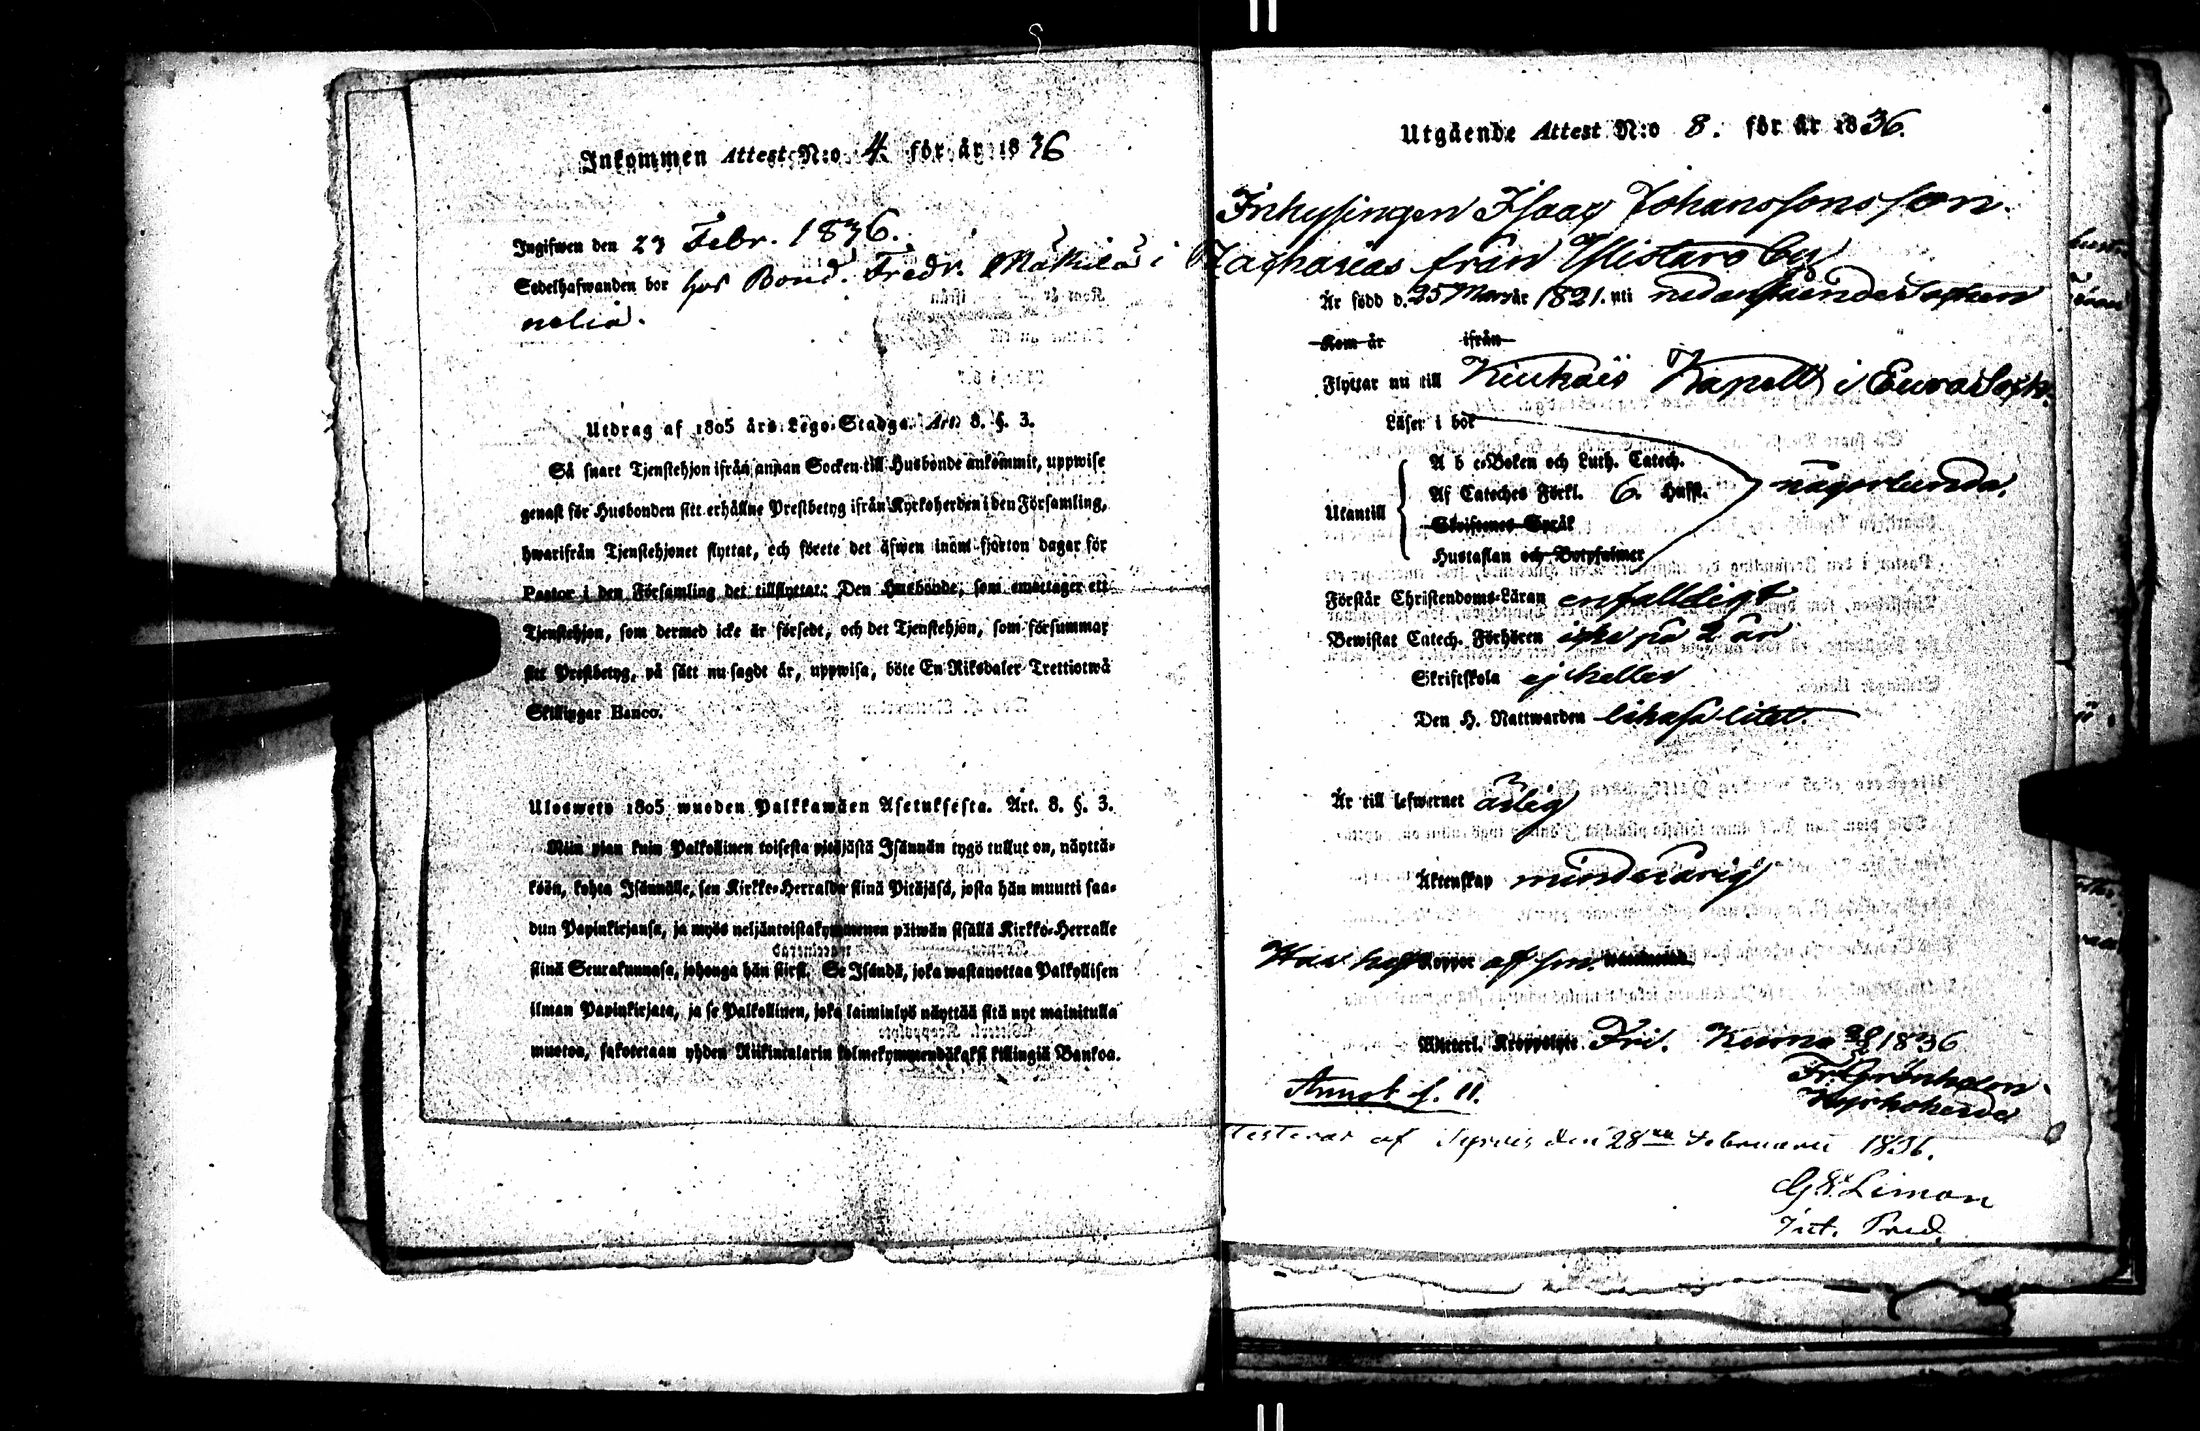 Inkommen Attest N:o 4. för år 1836
Ingifwen den 23 Febr. 1836.
Sedelhafwanden bor hos Bond. Fredr. Mäkilä i
nelia.
Utdrag af 1805 års Lego-Stadga. Art. 8. §. 3.
Så snart Tjenstehjon ifrån annan Socken till Husbonde ankommit, uppwise
genast för Husbonden sitt erhållne Prestbetyg ifrån Kyrkoherden i den Församling,
hwarifrån Tjenstehjonet flyttat, och förete det äfwen inom fjorton dagar för
Pastor i den Församling det tillflyttat: Den Husbonde, som emottager ett
Tjenstehjon, som dermed icke är försedt, och det Tjenstehjon, som försummar
sitt Prestbetyg, på sätt nu sagdt är, uppwisa, böte En Riksdaler Trettiotwå
Skillingar Banco.
Uloswetö 1805 wuoden Palkkawäen Asetuksesta. Art. 8. §. 3.
Niin pian kuin Palkollinen toisesta pitäjästä Isännän tygö tullut on, näyttä-
köön, kohta Isännälle, sen Kirkko-Herralda siinä Pitäjäsä, josta hän muutti saa-
dun Papinkirjansa, ja myös neljäntoistakymmenen päiwän sisällä Kirkko-Herralle
siinä Seurakunnasa, johonga hän siirsi. Se Isändä, joka wastanottaa Palkollisen
ilman Papinkirjata, ja se Palkollinen, joka laiminlyö näyttää sitä nyt mainitulla
muoton, sakotetaan yhden Riikintalarin kolmekymmendäkaksi killingiä Bankoa.
Utgående Attest N:o 8. för år 1836.
Inhysingen Isaac Johanssons son
Zacharias från Ylistaro by
Är född d. 25 Mars år 1821. uti nedanstående Socken
Kom år ifrån
Flyttar nu till Kiukais Kapell i Eura Sockn.
Läser i bok
A b c-Boken och Luth. Catech.
Af Cateches Förkl. 6. Hufst. någorlunda.
Utantill
Skriftenes Språk
Hustaflan och Botpsalmer
Förstår Christendoms-Läran enfalldigt
Bewistat Catech. Förhören icke på 2 år
Skriftskola ej heller
Den H. Nattwarden likaså litet.
Är till lefwernet ärlig
Äktenskap minderårig
Har haft Koppor af sm.
Witterl. Kroppslyte Fri. 1836
Fr. Grönholm
Kyrkoherde
Annot. f. 11.
af den 28 Februarii 1836.
G. Limon
Vict. Præd.